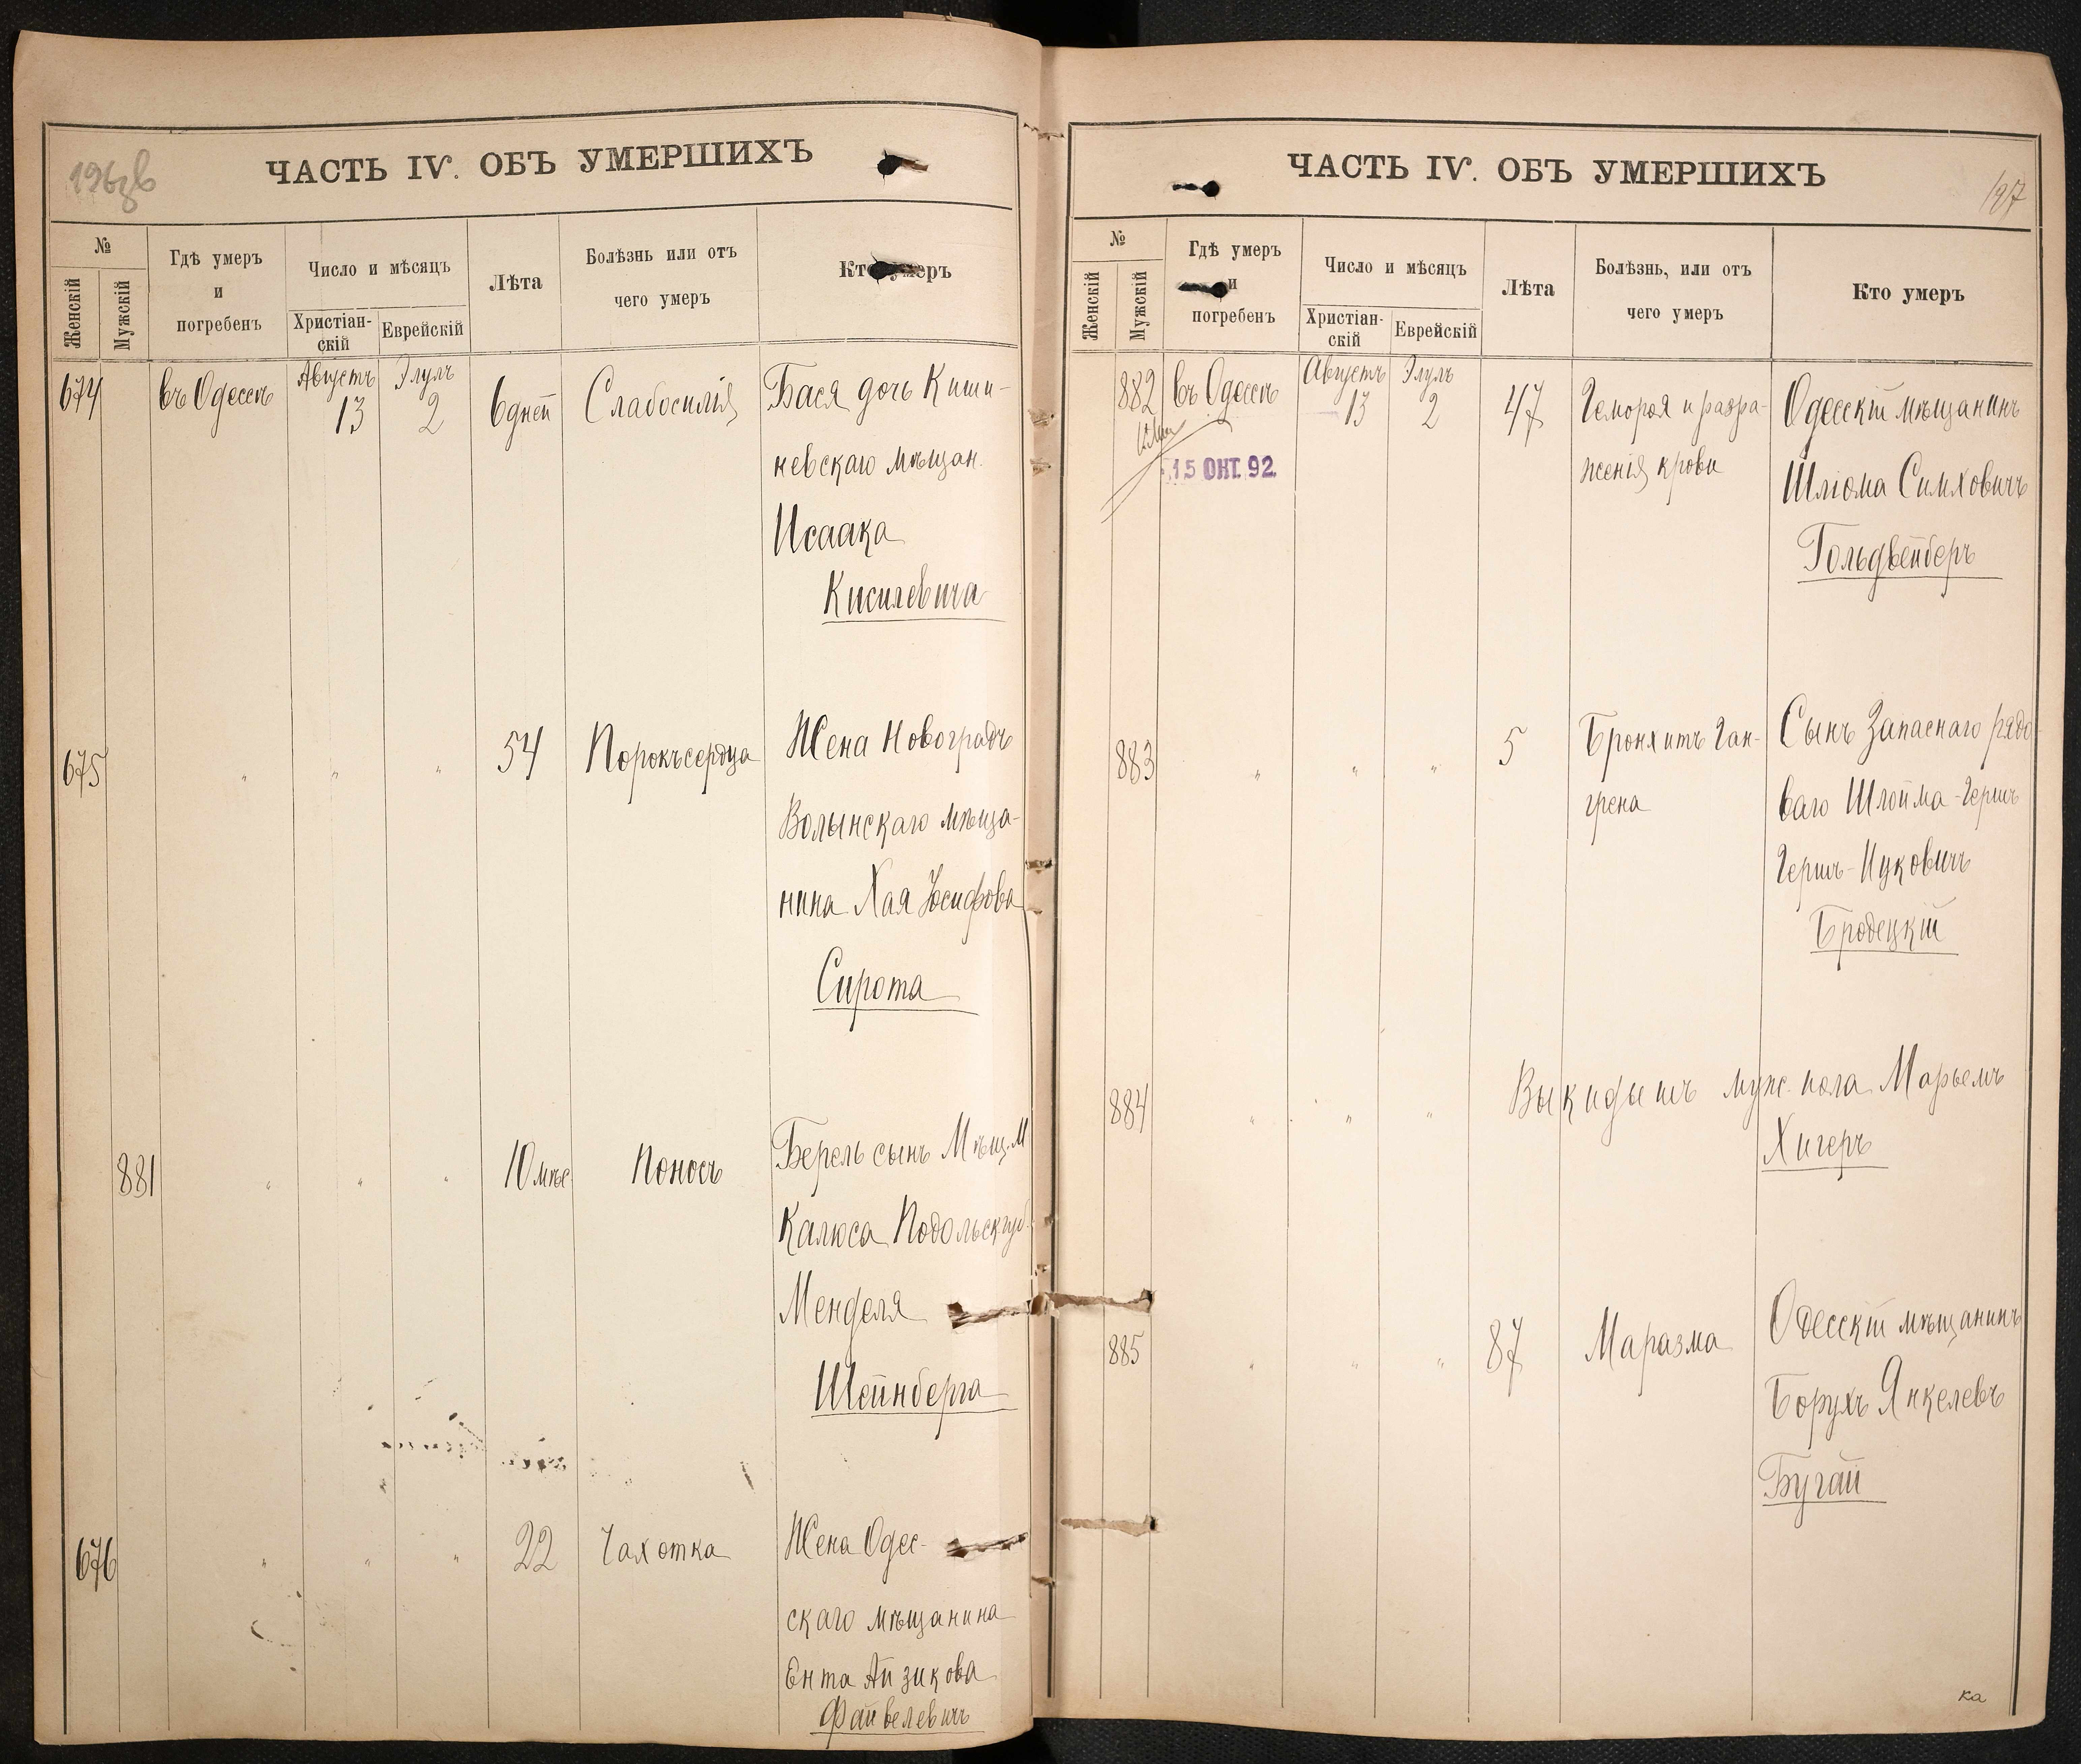 196зв
ЧАСТЬ IV. ОБЪ УМЕРШИХЪ
№
Женскій
Мужскій
Гдѣ умеръ
и
погребенъ
Число и мѣсяцъ
Христіан-
скій
Еврейскій
Лѣта
Болѣзнь или отъ
чего умеръ
Кто умеръ
674 въ Одессѣ Августъ 13 Элулъ 2 6 дней Слабосилія Бася дочь Киши-
невскаго мѣщан.
Исаака
Кисилевича
675 " " " 54 Порокъ сердца Жена Новоградъ
Волынскаго мѣща-
нина Хая Юсифова
Сирота
881 " " " 10 мѣс. Поносъ Берель сынъ Мѣщ. М
Калюса Подольск губ.
Менделя
Шейнберга
676 " " " 22 Чахотка Жена Одес-
скаго мѣщанина
Ента Айзикова
Файвелевичъ
ЧАСТЬ IV. ОБЪ УМЕРШИХЪ
197
№
Женскій
Мужскій
Гдѣ умеръ
и
погребенъ
Число и мѣсяцъ
Христіан-
скій
Еврейскій
Лѣта
Болѣзнь, или отъ
чего умеръ
Кто умеръ
882 въ Одессѣ Августъ 13 Элулъ 2 47 Гемороя и разра- Одесскій мѣщанинъ
15 ОКТ. 92
женія крови Шліома Симховичъ
Гольдвейберъ
883 " " " 5 Бронхитъ Ган- Сынъ Запаснаго рядо
грена ваго Шлойма-Гершъ
Гершъ-Ицковичъ
Бродецкій
884 " " " Выкидышъ муж. пола Марьемъ
Хигеръ
885 " " " 87 Маразма Одесскій мѣщанинъ
Борухъ Янкелевъ
Бугай
ка